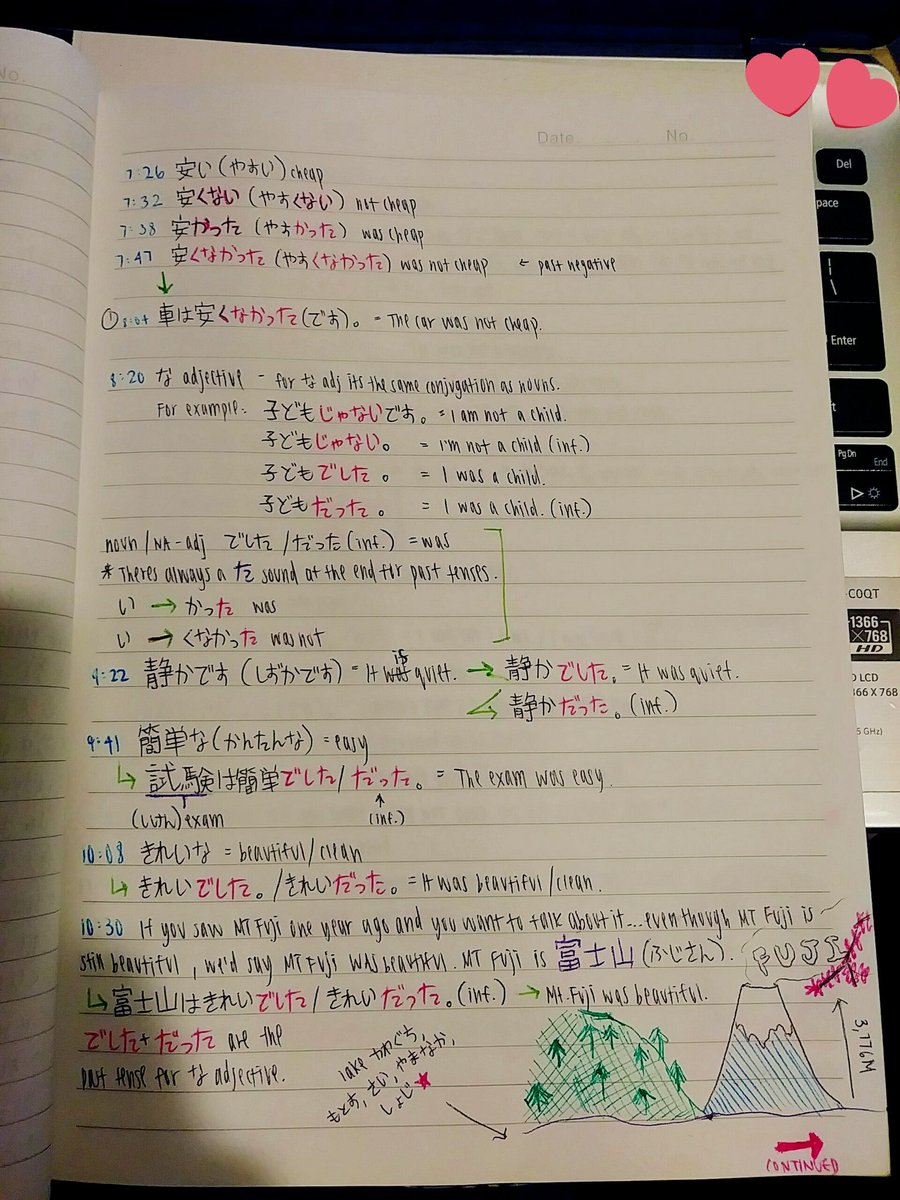 No.
Date No.
7:26 安い (やすい) cheap
7:32 安くない (やすくない) not cheap
7:38 安かった (やすかった) was cheap
7:47 安くなかった (やすくなかった) was not cheap ← past negative
↓
① 8:04 車は安くなかった(です)。 = The car was not cheap.
8:20 な adjective - for な adj its the same conjugation as nouns.
For example: 子どもじゃないです。 = I am not a child.
子どもじゃない。 = I'm not a child (inf.)
子どもでした。 = I was a child.
子どもだった。 = I was a child. (inf.)
noun/NA-adj でした/だった(inf.) = was
* Theres always a た sound at the end for past tenses.
い → かった was
い → くなかった was not
9:22 静かです (しずかです) = It is quiet. → 静かでした。 = It was quiet.
静かだった。(inf.)
9:41 簡単な(かんたんな) = easy
↳ 試験は簡単でした/だった。 = The exam was easy.
(しけん) exam ↑ (inf.)
10:08 きれいな = beautiful/clean
↳ きれいでした。/きれいだった。 = It was beautiful/clean.
10:30 If you saw MT Fuji one year ago and you want to talk about it... even though MT Fuji is
still beautiful, we'd say MT Fuji WAS beautiful. MT Fuji is 富士山 (ふじさん).
FUJI
↳ 富士山はきれいでした/きれいだった。(inf.) → Mt. Fuji was beautiful.
でした+だった are the
past tense for な adjective.
lake かわぐち,
もとす, さい, やまなか,
しょじ
3,776M
CONTINUED
Del
Enter
PgDn
End
-C0QT
1366
×768
HD
D LCD
366 X 768
5 GHz)